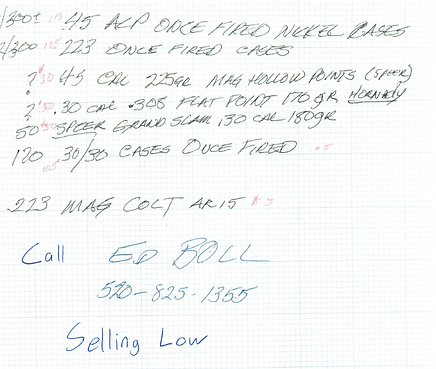 /300± .45 ACP ONCE FIRED NICKEL CASES
/300 .223 ONCE FIRED CASES
? 30 45 CAL 225gr MAG HOLLOW POINTS (SPEER)
? .30 CAL .308 FLAT POINT 170 gr HORNADY
50 SPEER GRAND SLAM .30 CAL 180gr
120 .30/30 CASES ONCE FIRED
.223 MAG COLT AR15
Call ED BOLL
520-825-1355
Selling Low